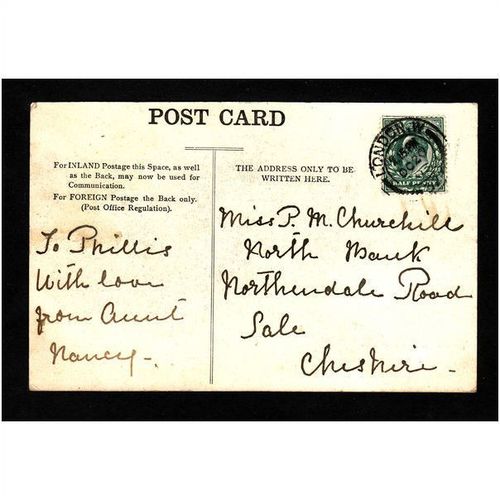 POST CARD
For INLAND Postage this Space, as well
as the Back, may now be used for
Communication.
For FOREIGN Postage the Back only.
(Post Office Regulation).
THE ADDRESS ONLY TO BE
WRITTEN HERE.
LONDON. W
HALF PENNY
To Phillis
With love
from Aunt
Nancy.
Miss P. M. Churchill
North Bank
Northendale Road
Sale
Cheshire.